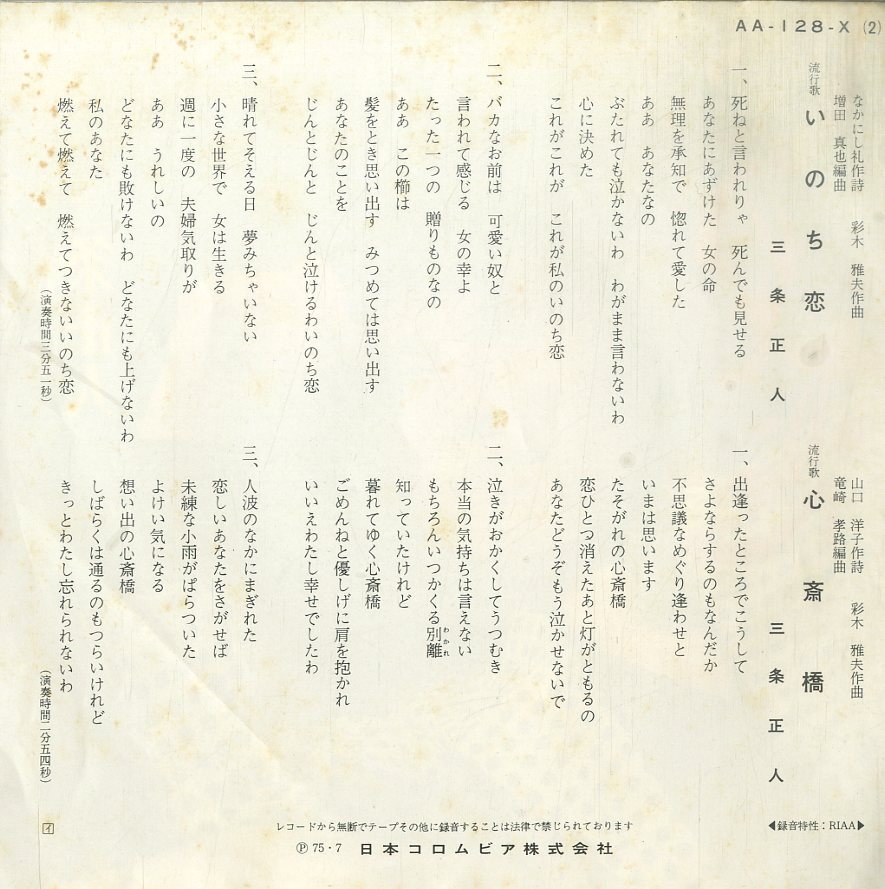 AA-128-X (2)
流行歌
いのち恋
なかにし礼作詩 彩木 雅夫作曲
増田 真也編曲
三条正人
一、死ねと言われりゃ 死んでも見せる
あなたにあずけた 女の命
無理を承知で 惚れて愛した
ああ あなたなの
ぶたれても泣かないわ わがまま言わないわ
心に決めた
これがこれが これが私のいのち恋
二、バカなお前は 可愛い奴と
言われて感じる 女の幸よ
たった一つの 贈りものなの
ああ この櫛は
髪をとき思い出す みつめては思い出す
あなたのことを
じんとじんと じんと泣けるわいのち恋
三、晴れてそえる日 夢みちゃいない
小さな世界で 女は生きる
週に一度の 夫婦気取りが
ああ うれしいの
どなたにも敗けないわ どなたにも上げないわ
私のあなた
燃えて燃えて 燃えてつきないいのち恋
(演奏時間三分五一秒)
流行歌
心斎橋
山口 洋子作詩 彩木 雅夫作曲
竜崎 孝路編曲
三条正人
一、出逢ったところでこうして
さよならするのもなんだか
不思議なめぐり逢わせと
いまは思います
たそがれの心斎橋
恋ひとつ消えたあと灯がともるの
あなたどうぞもう泣かせないで
二、泣きがおかくしてうつむき
本当の気持ちは言えない
もちろんいつかくる別離
わかれ
知っていたけれど
暮れてゆく心斎橋
ごめんねと優しげに肩を抱かれ
いいえわたし幸せでしたわ
三、人波のなかにまぎれた
恋しいあなたをさがせば
未練な小雨がぱらついた
よけい気になる
想い出の心斎橋
しばらくは通るのもつらいけれど
きっとわたし忘れられないわ
(演奏時間二分五四秒)
◀録音特性:RIAA▶
レコードから無断でテープその他に録音することは法律で禁じられております
Ⓟ75・7 日本コロムビア株式会社
イ